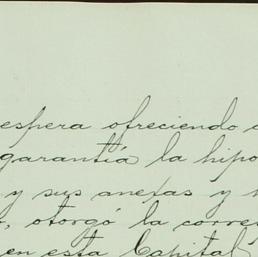 espera ofreciendo
garantía la hipo
y sus anexas y
otorgó la corres
en esta Capital